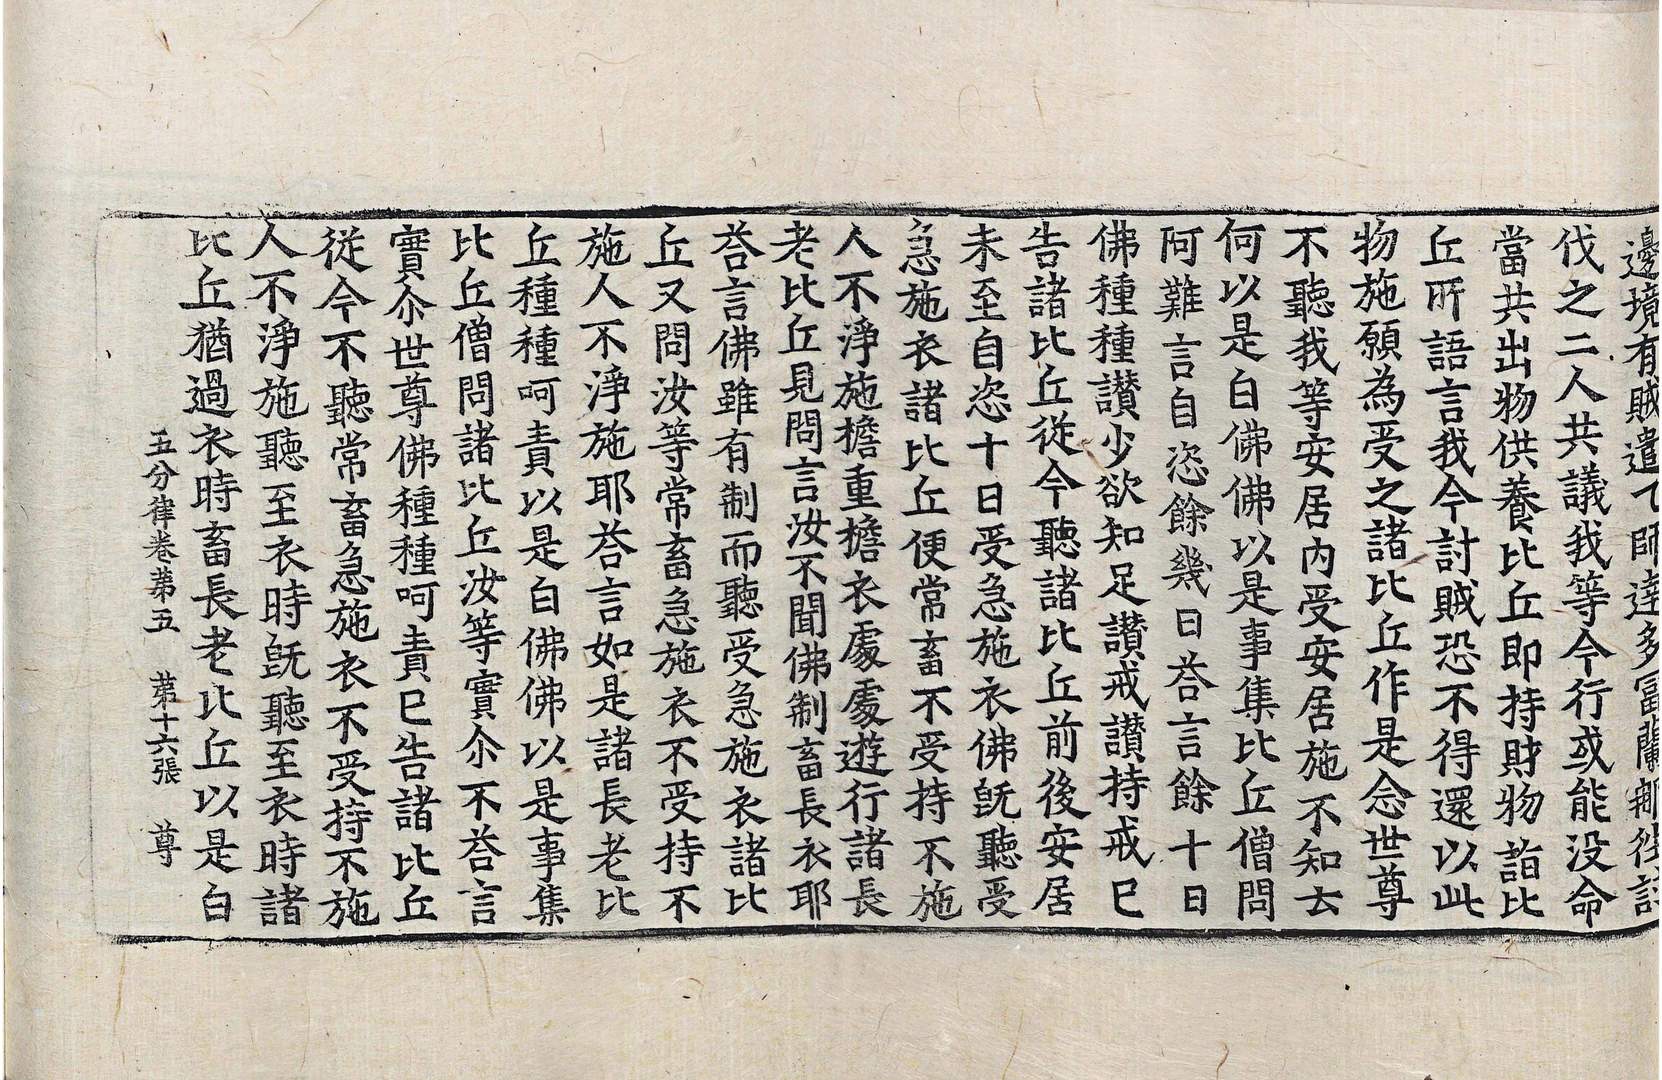 邊境有賊遣了師達多冨蘭那徃討
伐之二人共議我等今行或能没命
當共出物供養比丘即持財物詣比
丘所語言我今討賊恐不得還以此
物施願為受之諸比丘作是念世尊
不聽我等安居内受安居施不知云
何以是白佛佛以是事集比丘僧問
阿難言自恣餘幾日荅言餘十日
佛種種讃少欲知足讃戒讃持戒已
告諸比丘從今聽諸比丘前後安居
未至自恣十日受急施衣佛旣聽受
急施衣諸比丘便常畜不受持不施
人不淨施擔重擔衣處處遊行諸長
老比丘見問言汝不聞佛制畜長衣耶
荅言佛雖有制而聽受急施衣諸比
丘又問汝等常畜急施衣不受持不
施人不淨施耶荅言如是諸長老比
丘種種呵責以是白佛佛以是事集
比丘僧問諸比丘汝等實尒不荅言
實尒世尊佛種種呵責已告諸比丘
從今不聽常畜急施衣不受持不施
人不淨施聽至衣時旣聽至衣時諸
比丘猶過衣時畜長老比丘以是白
五分律卷第五 第十六張 尊